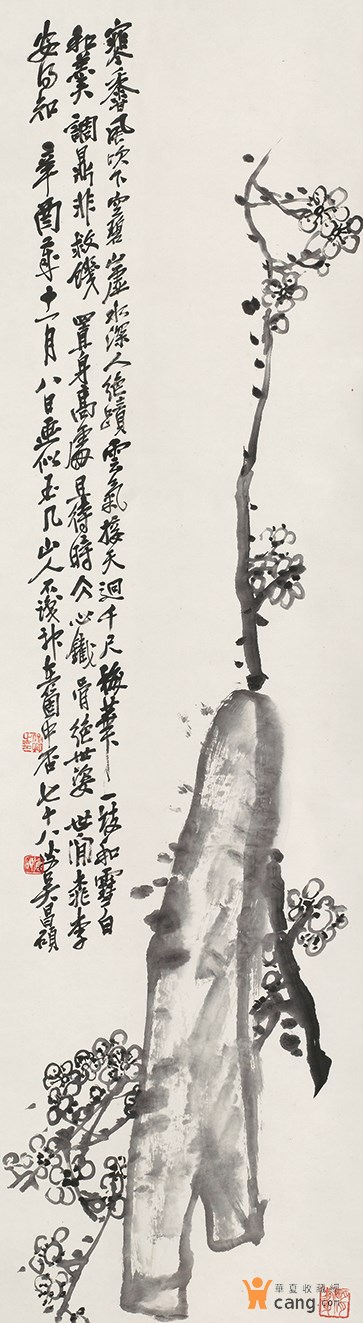 寒香風吹下空碧山虛水深人絕蹟雲氣接天迥千尺梅華一枝和雪白
和羹調鼎非救饑置身高處且待時仌心鐵骨絕世姿世間桃李
安得知 辛酉歲十一月八日畫似玉几山人不識神在箇中否七十八叟吳昌碩
華夏收藏網
cang.com